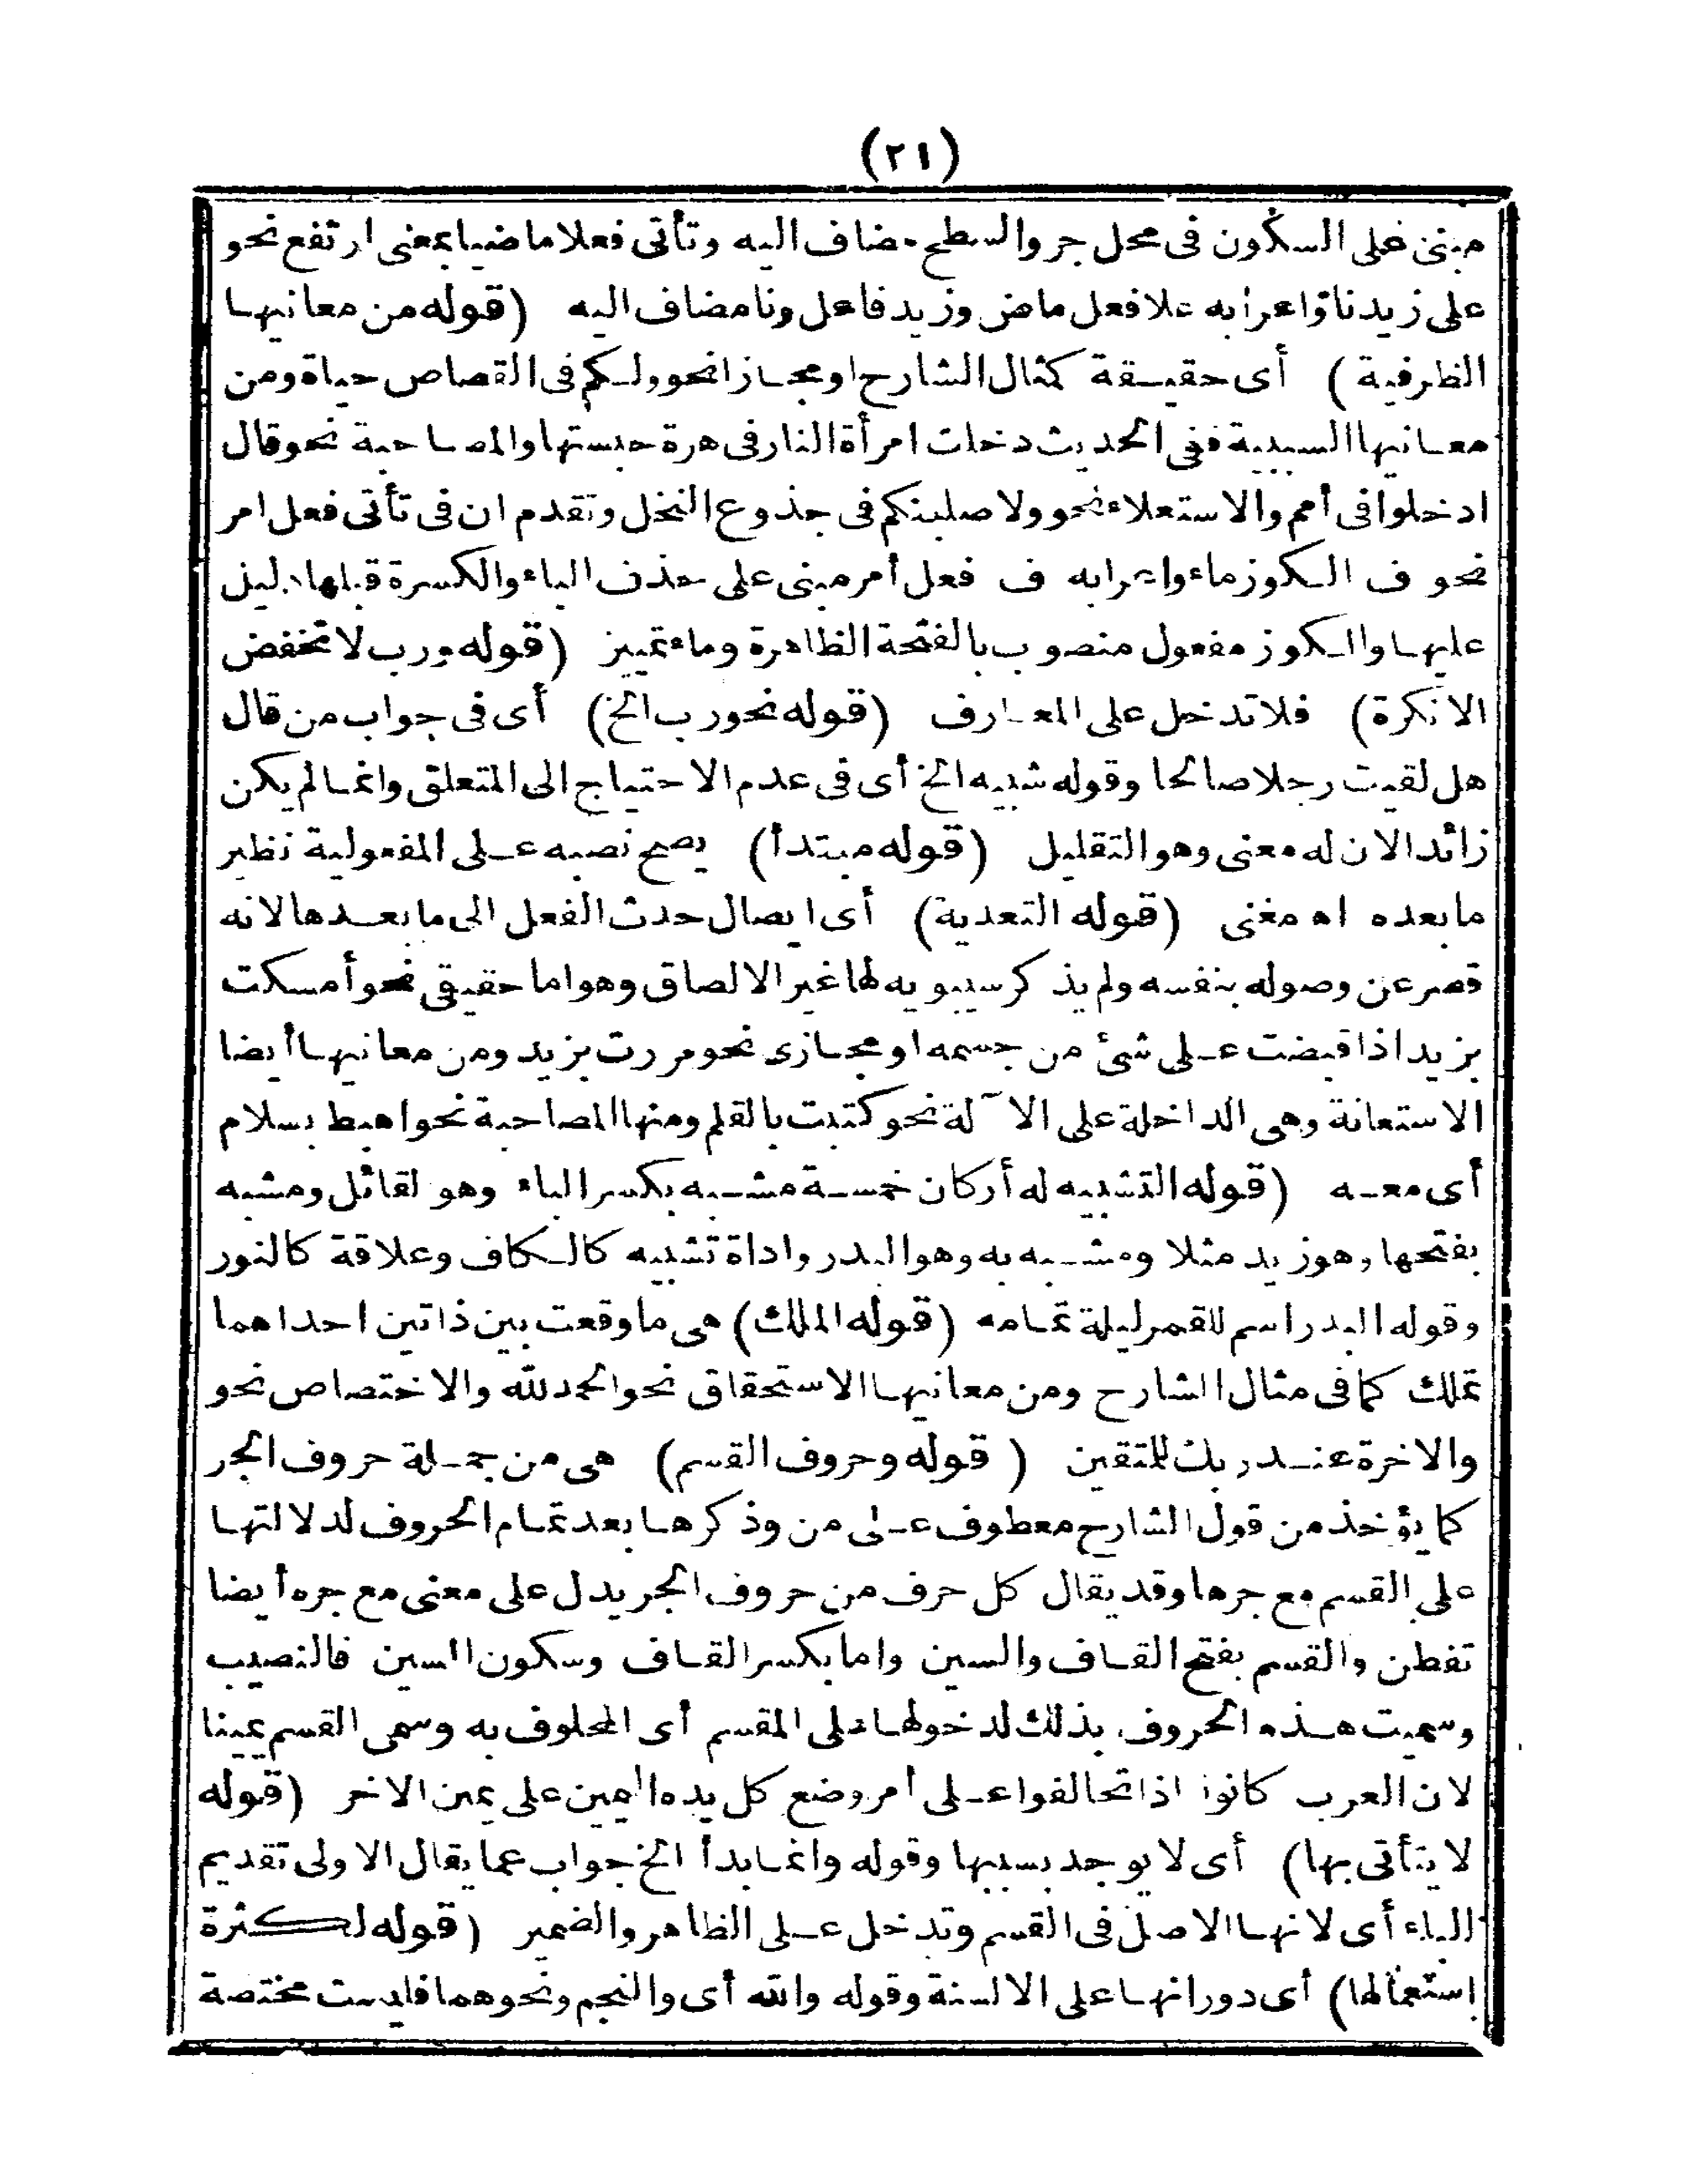 (٢١)
مبنى على السكون فى محل جر والسطح مضاف اليه وتأتى فعلا ماضيا بمعنى ارتفع نحو
على زيدنا واعرابه علا فعل ماض وزيد فاعل ونا مضاف اليه (قوله من معانيها
الظرفية) أى حقيقة كمثال الشارح او مجازا نحو ولكم فى القصاص حياة ومن
معانيها السببية ففى الحديث دخلت امرأة النار فى هرة حبستها والمصاحبة نحو قال
ادخلوا فى أمم والاستعلاء نحو ولاصلبنكم فى جذوع النخل وتقدم ان فى تأتى فعل امر
نحو ف الكوز ماء واعرابه ف فعل أمر مبنى على حذف الياء والكسرة قبلها دليل
عليها والكوز مفعول منصوب بالفتحة الظاهرة وماء تمييز (قوله ورب لا تخفض
الا نكرة) فلا تدخل على المعارف (قوله نحو رب الخ) أى فى جواب من قال
هل لقيت رجلا صالحا وقوله شبيه الخ أى فى عدم الاحتياج الى المتعلق وانما لم يكن
زائدا لان له معنى وهو التقليل (قوله مبتدأ) يصح نصبه على المفعولية نظير
ما بعده اه مغنى (قوله التعدية) أى ايصال حدث الفعل الى ما بعدها لانه
قصر عن وصوله بنفسه ولم يذكر سيبويه لها غير الالصاق وهو اما حقيقى نحو أمسكت
بزيد اذا قبضت على شئ من جسمه او مجازى نحو مررت بزيد ومن معانيها أيضا
الاستعانة وهى الداخلة على الآلة نحو كتبت بالقلم ومنها المصاحبة نحو اهبط بسلام
أى معه (قوله التشبيه له أركان خمسة مشبه بكسر الباء وهو لقائل ومشبه
بفتحها وهو زيد مثلا ومشبه به وهو البدر واداة تشبيه كالكاف وعلاقة كالنور
وقوله البدر اسم للقمر ليلة تمامه (قوله الملك) هى ما وقعت بين ذاتين احداهما
تملك كما فى مثال الشارح ومن معانيها الاستحقاق نحو الحمد لله والاختصاص نحو
والاخرة عند ربك للمتقين (قوله وحروف القسم) هى من جملة حروف الجر
كما يؤخذ من قول الشارح معطوف على من وذكرها بعد تمام الحروف لدلالتها
على القسم مع جرها وقد يقال كل حرف من حروف الجر يدل على معنى مع جره أيضا
تفطن والقسم بفتح القاف والسين واما بكسر القاف وسكون السين فالنصيب
وسميت هذه الحروف بذلك لدخولها على المقسم أى المحلوف به وسمى القسم يمينا
لان العرب كانوا اذا تحالفوا على أمر وضع كل يده اليمين على يمين الاخر (قوله
لا يتأتى بها) أى لا يوجد بسببها وقوله وانما بدأ الخ جواب عما يقال الاولى تقديم
الباء أى لانها الاصل فى القسم وتدخل على الظاهر والضمير (قوله لكثرة
استعمالها) أى دورانها على الالسنة وقوله والله أى والنجم ونحوهما فليست مختصة